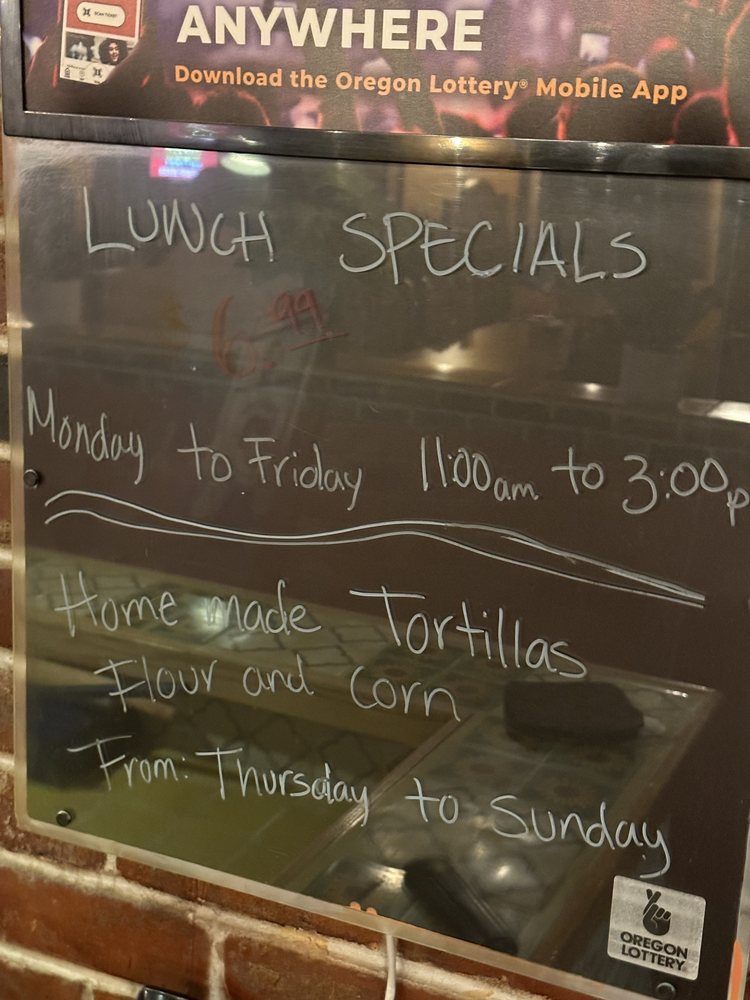 SCAN TICKET
ANYWHERE
Download the Oregon Lottery® Mobile App
LUNCH SPECIALS
6.99
Monday to Friday 11:00am to 3:00p
Home made Tortillas
Flour and corn
From: Thursday to Sunday
OREGON
LOTTERY